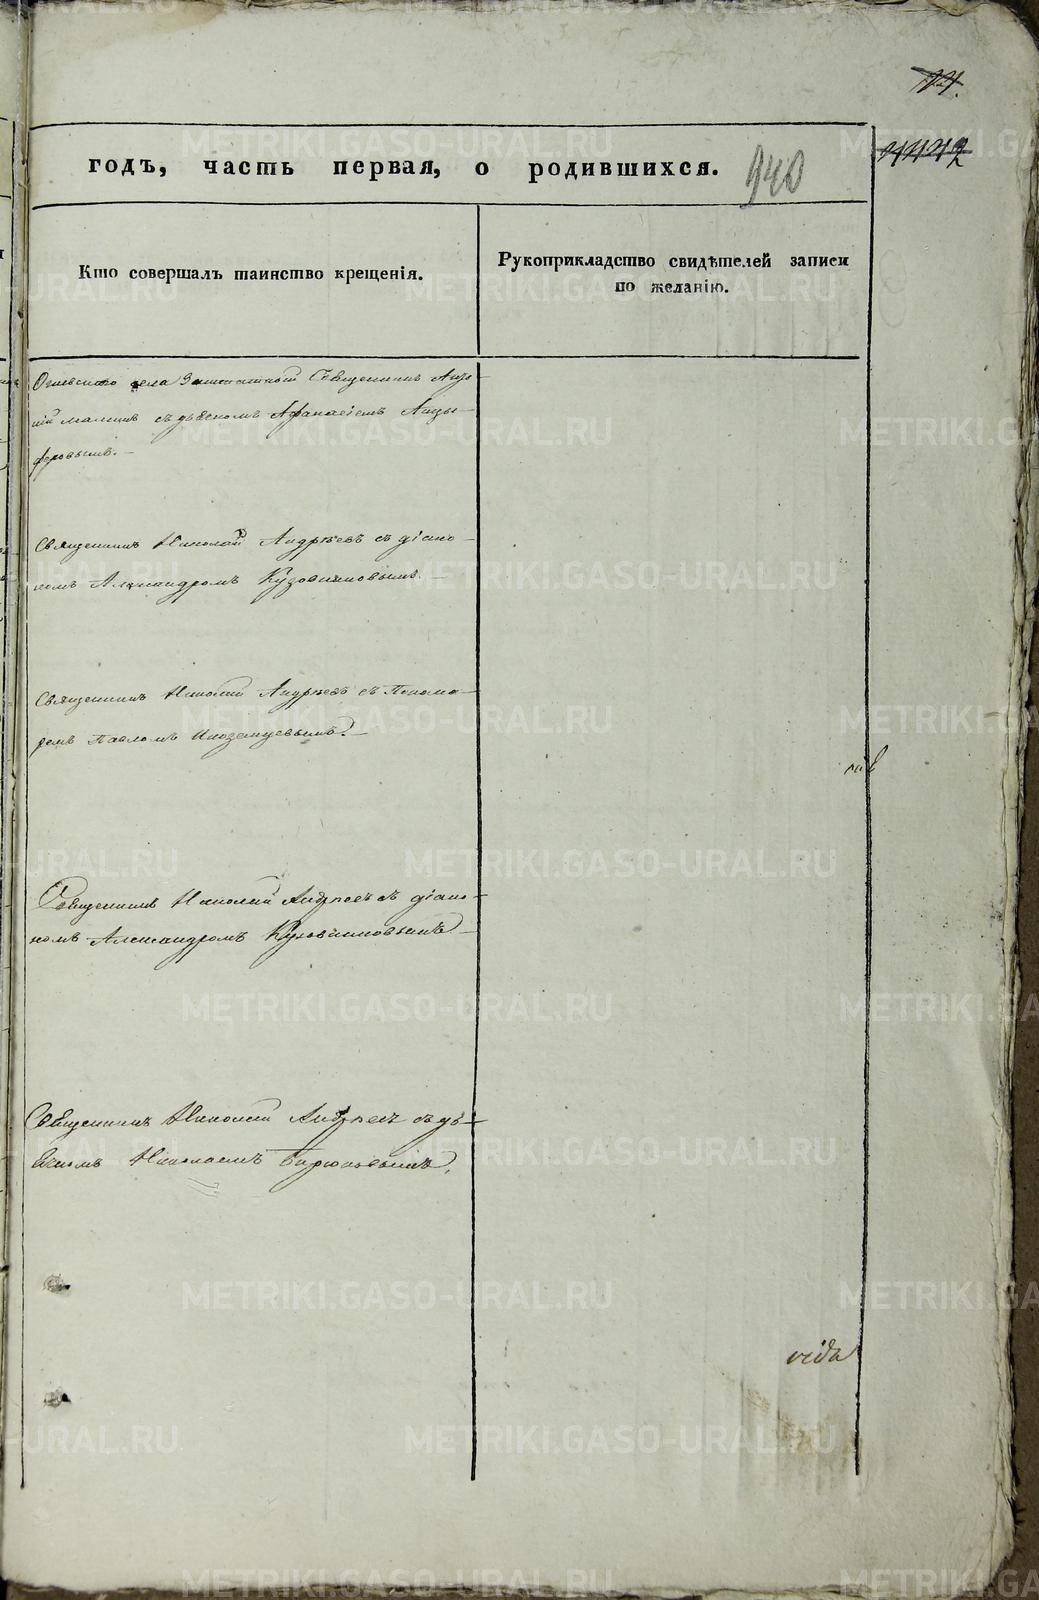 940
годъ, часть первая, о родившихся.
Кто совершалъ таинство крещенія.
Рукоприкладство свидѣтелей записи
по желанію.
села Заштатный Священникъ
съ дьячкомъ Афанасіемъ Анцы-
феровымъ.-
Священникъ Николай Андрѣевъ съ діако-
номъ Александромъ Кузовниковымъ.-
Священникъ Николай Андрѣевъ съ Понома-
ремъ Павломъ Иноземцевымъ.-
Священникъ Николай Андреевъ съ діако-
номъ Александромъ Кузовниковымъ
Священникъ Николай Андреевъ съ дья-
чкомъ Николаемъ Бирюковымъ.
METRIKI.GASO-URAL.RU